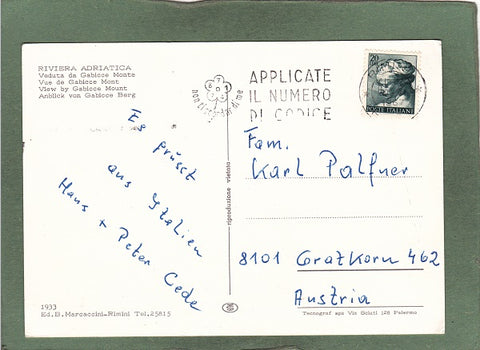 RIVIERA ADRIATICA
Veduta da Gabicce Monte
Vue de Gabicce Mont
View by Gabicce Mount
Anblick von Gabicce Berg
APPLICATE
IL NUMERO
DI CODICE
20
POSTE ITALIANE
Es grüsst
aus Italien
Hans + Peter Cede
Fam.
Karl Palfner
8101 Gratkorn 462
Austria
riproduzione vietata
1933
Ed. B. Marcaccini-Rimini Tel. 25815
Tecnograf spa Via Goiuti 128 Palermo